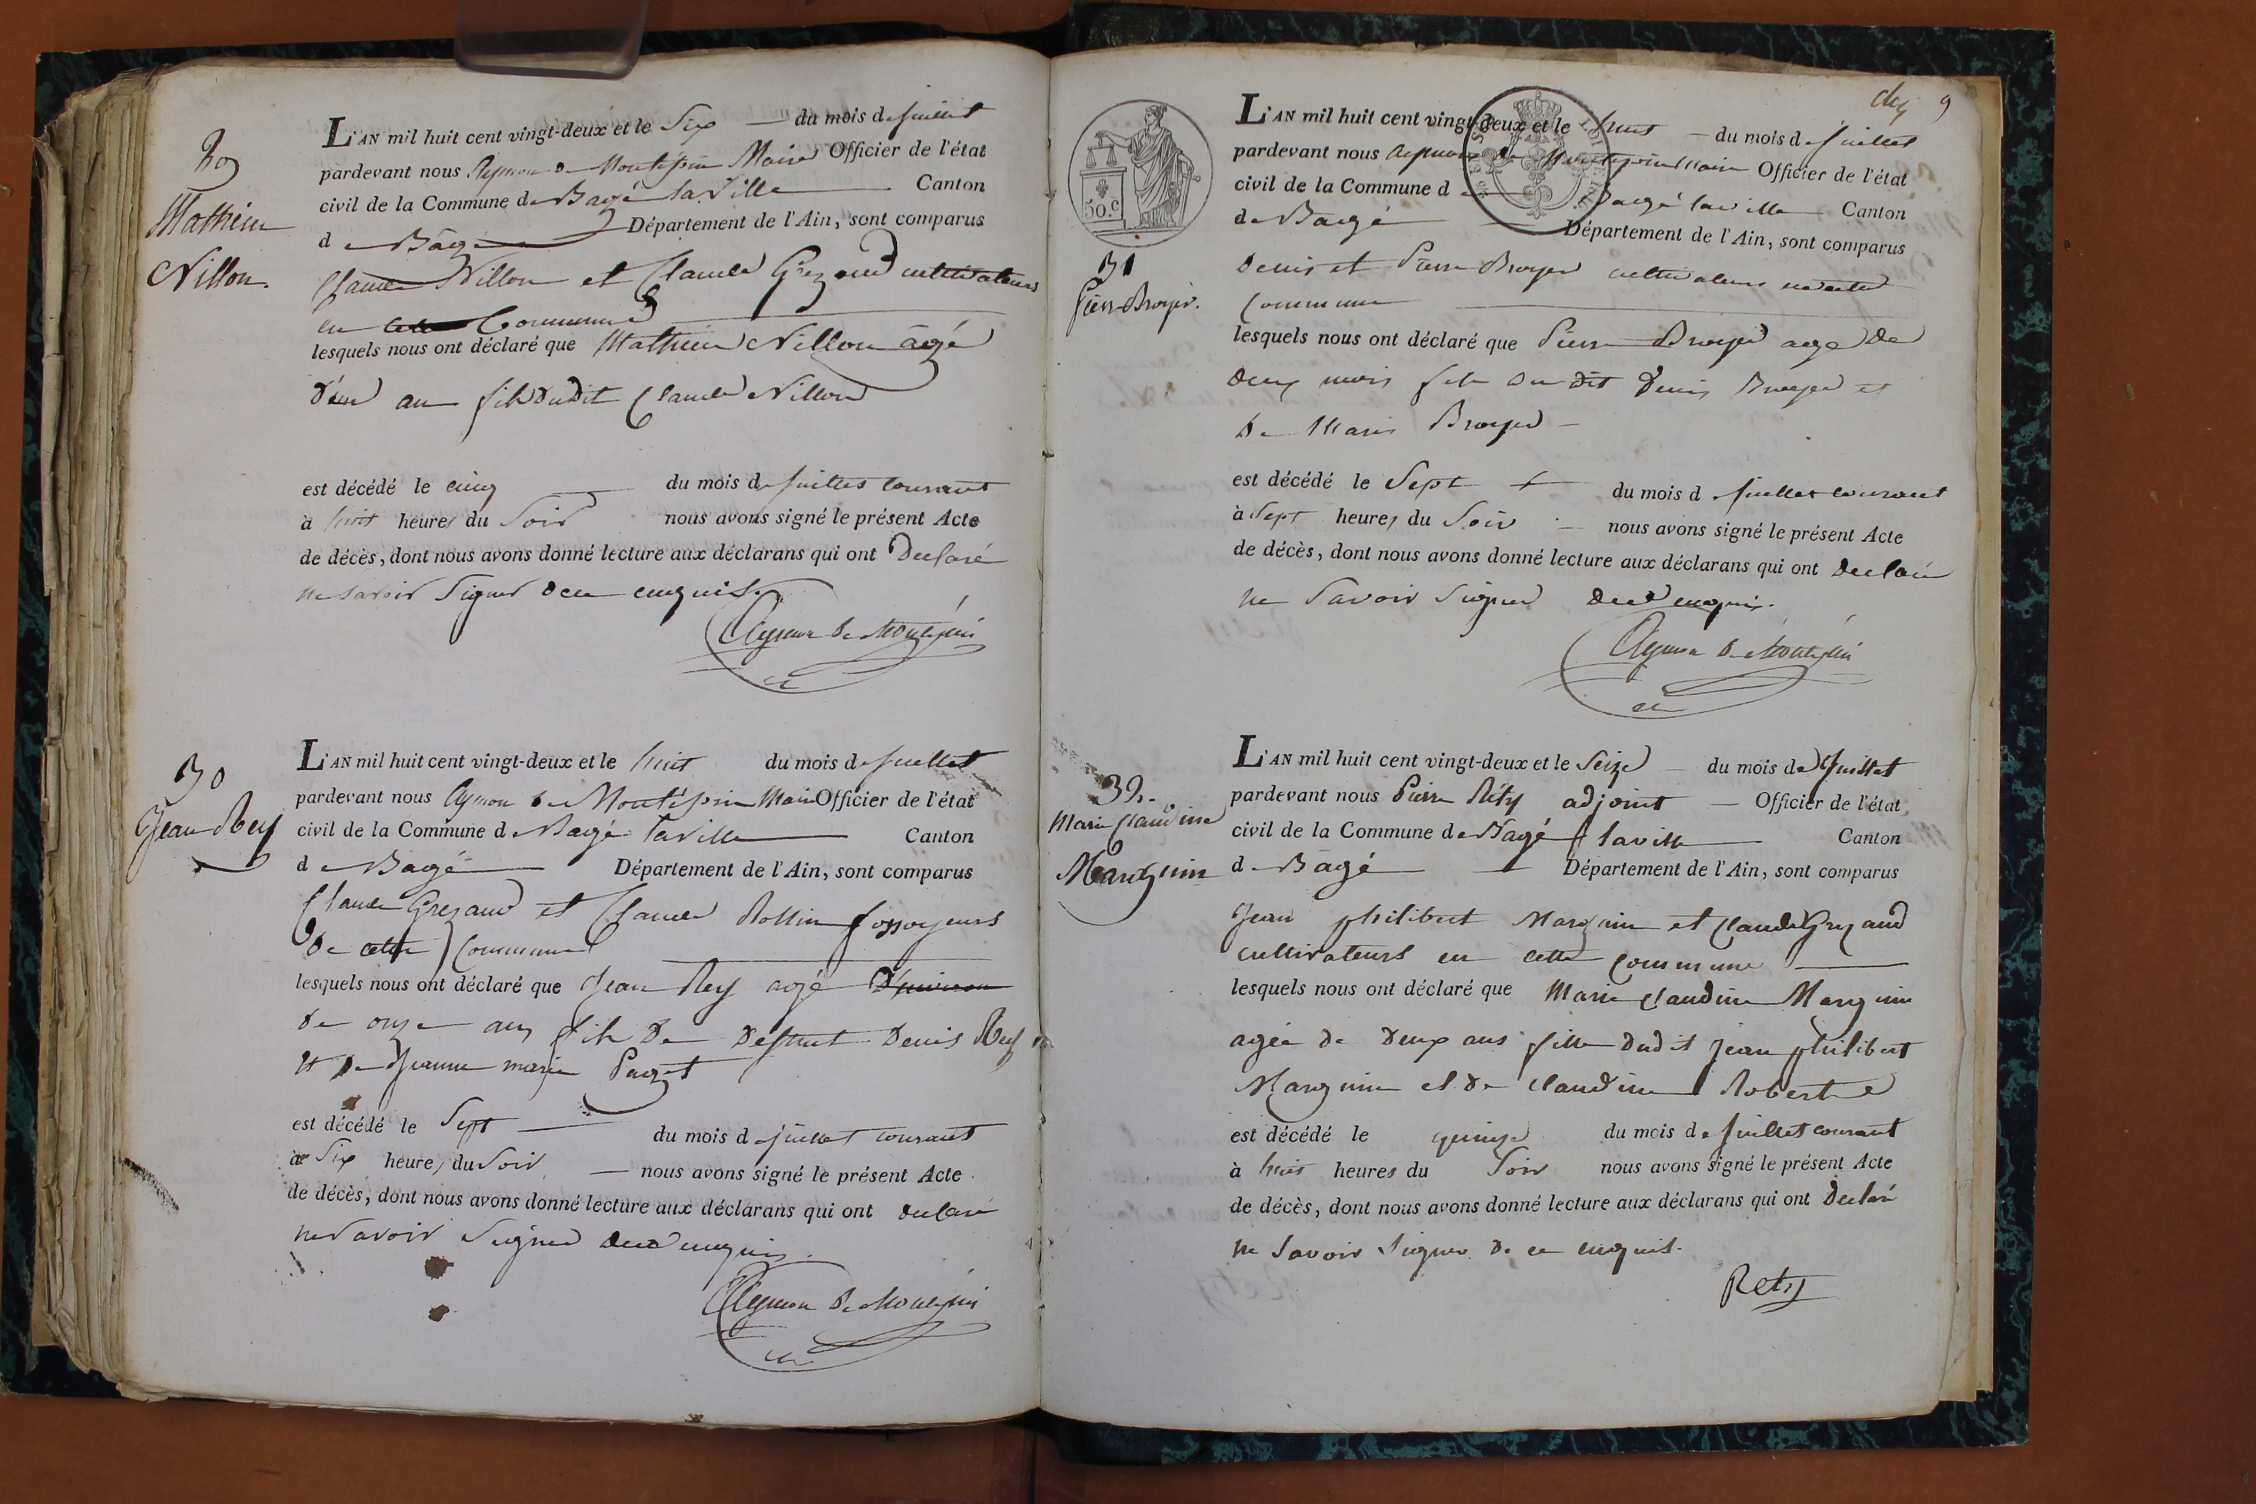 29
Mathieu
Nillon.
L'AN mil huit cent vingt-deux et le Six — du mois de juillet
pardevant nous Aymon de Montépin Maire Officier de l'état
civil de la Commune de Bagé la Ville — Canton
de Bâgé — Département de l'Ain, sont comparus
Claude Nillon et Claude Grezaud cultivateurs
en cette Commune
lesquels nous ont déclaré que Mathieu Nillon âgé
d'un an fils dudit Claude Nillon
est décédé le cinq — du mois de juillet courant
à huit heures du Soir nous avons signé le présent Acte
de décès, dont nous avons donné lecture aux déclarans qui ont Déclaré
ne savoir Signer de ce enquis.
Aymon de Montépin
30
Jean Rey
L'AN mil huit cent vingt-deux et le huit du mois de juillet
pardevant nous Aymon de Montépin Maire Officier de l'état
civil de la Commune de Bagé la ville — Canton
de Bagé — Département de l'Ain, sont comparus
Claude Grezaud et Claude Rollin fossoyeurs
de cette Commune
lesquels nous ont déclaré que Jean Rey agé d'environ
de onze ans fils de défunt Denis Rey
et de Jeanne marie Paget
est décédé le Sept — du mois de juillet courant
à Six heures du Soir — nous avons signé le présent Acte
de décès, dont nous avons donné lecture aux déclarans qui ont declaré
ne Savoir Signer de ce enquis.
Aymon de Montépin
9
50. c
31
Pierre Broyer.
L'AN mil huit cent vingt-deux et le huit — du mois de juillet
pardevant nous Aymon de Montépin Maire Officier de l'état
civil de la Commune de Bagé la ville Canton
de Bagé — Département de l'Ain, sont comparus
Denis et Pierre Broyer cultivateurs en cette
Commune
lesquels nous ont déclaré que Pierre Broyer agé de
deux mois fils du dit Denis Broyer et
de Marie Broyer —
est décédé le Sept — du mois de juillet courant
à Sept heures du Soir — nous avons signé le présent Acte
de décès, dont nous avons donné lecture aux déclarans qui ont declaré
ne Savoir Signer de ce enquis.
Aymon de Montépin
32.
Marie Claudine
Manguin
L'AN mil huit cent vingt-deux et le Seize — du mois de Juillet
pardevant nous Pierre Réty adjoint — Officier de l'état
civil de la Commune de Bagé la ville Canton
de Bagé — Département de l'Ain, sont comparus
Jean philibert Manguin et Claude Grezaud
cultivateurs en cette commune —
lesquels nous ont déclaré que Marie Claudine Manguin
agée de deux ans fille dudit Jean philibert
Manguin et de Claudine Robert
est décédé le quinze du mois de juillet courant
à huit heures du Soir nous avons signé le présent Acte
de décès, dont nous avons donné lecture aux déclarans qui ont declaré
ne Savoir Signer de ce enquis.
Rety